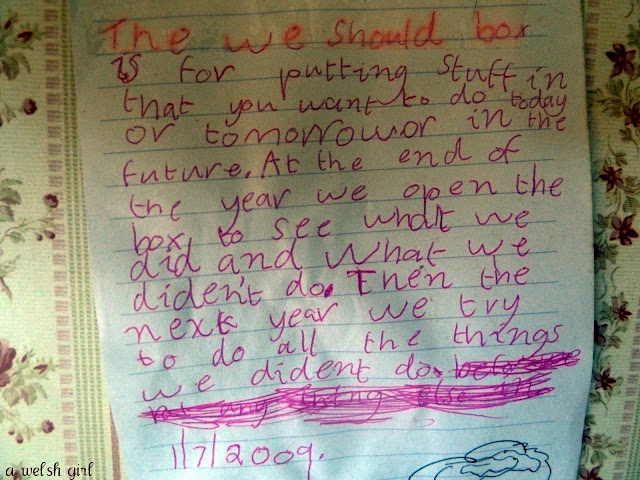 The we should box
is for putting stuff in
that you want to do today
or tomorrow or in the
future. At the end of
the year we open the
box to see what we
did and what we
dident do. Then the
next year we try
to do all the things
we dident do.
1/7/2009.
a welsh girl